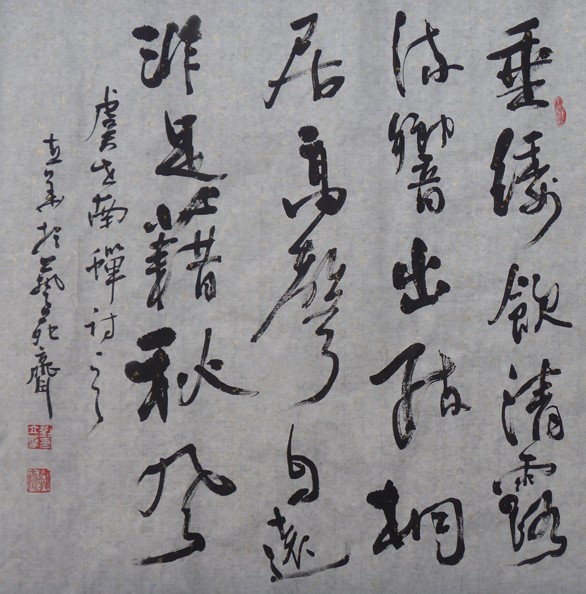 垂緌飲清露
流響出疏桐
居高聲自遠
非是藉秋風
虞世南蟬詩
於藝苑齋